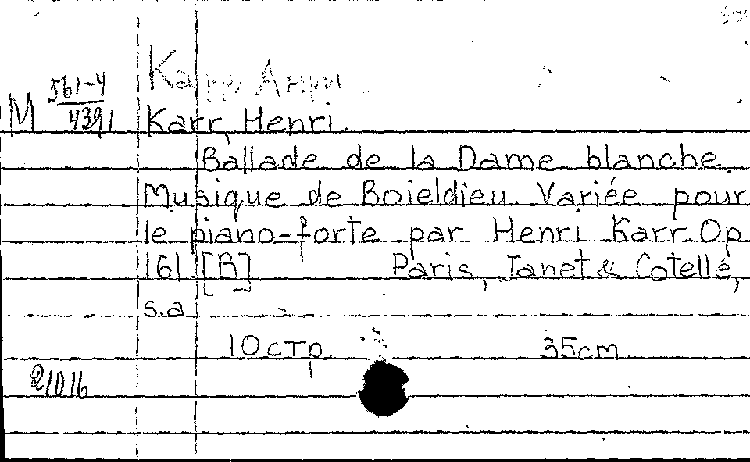 Карр Анри
M 561-4/4391 Karr, Henri.
Ballade de la Dame blanche.
Musique de Boieldieu. Variée pour
le piano-forte par Henri Karr. Op
161 [B] Paris, Janet & Cotelle,
s.a
10 стр. 35 cm
21016